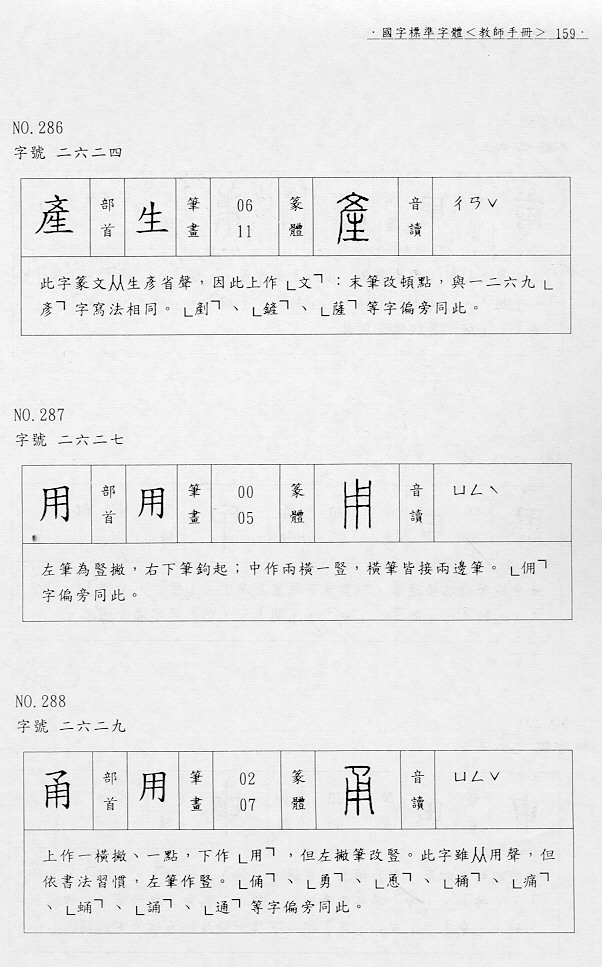 ·國字標準字體＜教師手冊＞ 159·
NO.286
字號 二六二四
產 部首 生 筆畫 06 11 篆體 音讀 ㄔㄢˇ
此字篆文从生彥省聲，因此上作「文」：末筆改頓點，與一二六九「
彥」字寫法相同。「剷」、「鏟」、「薩」等字偏旁同此。
NO.287
字號 二六二七
用 部首 用 筆畫 00 05 篆體 音讀 ㄩㄥˋ
左筆為豎撇，右下筆鉤起；中作兩橫一豎，橫筆皆接兩邊筆。「佣」
字偏旁同此。
NO.288
字號 二六二九
甬 部首 用 筆畫 02 07 篆體 音讀 ㄩㄥˇ
上作一橫撇、一點，下作「用」，但左撇筆改豎。此字雖从用聲，但
依書法習慣，左筆作豎。「俑」、「勇」、「恿」、「桶」、「痛」
、「蛹」、「誦」、「通」等字偏旁同此。